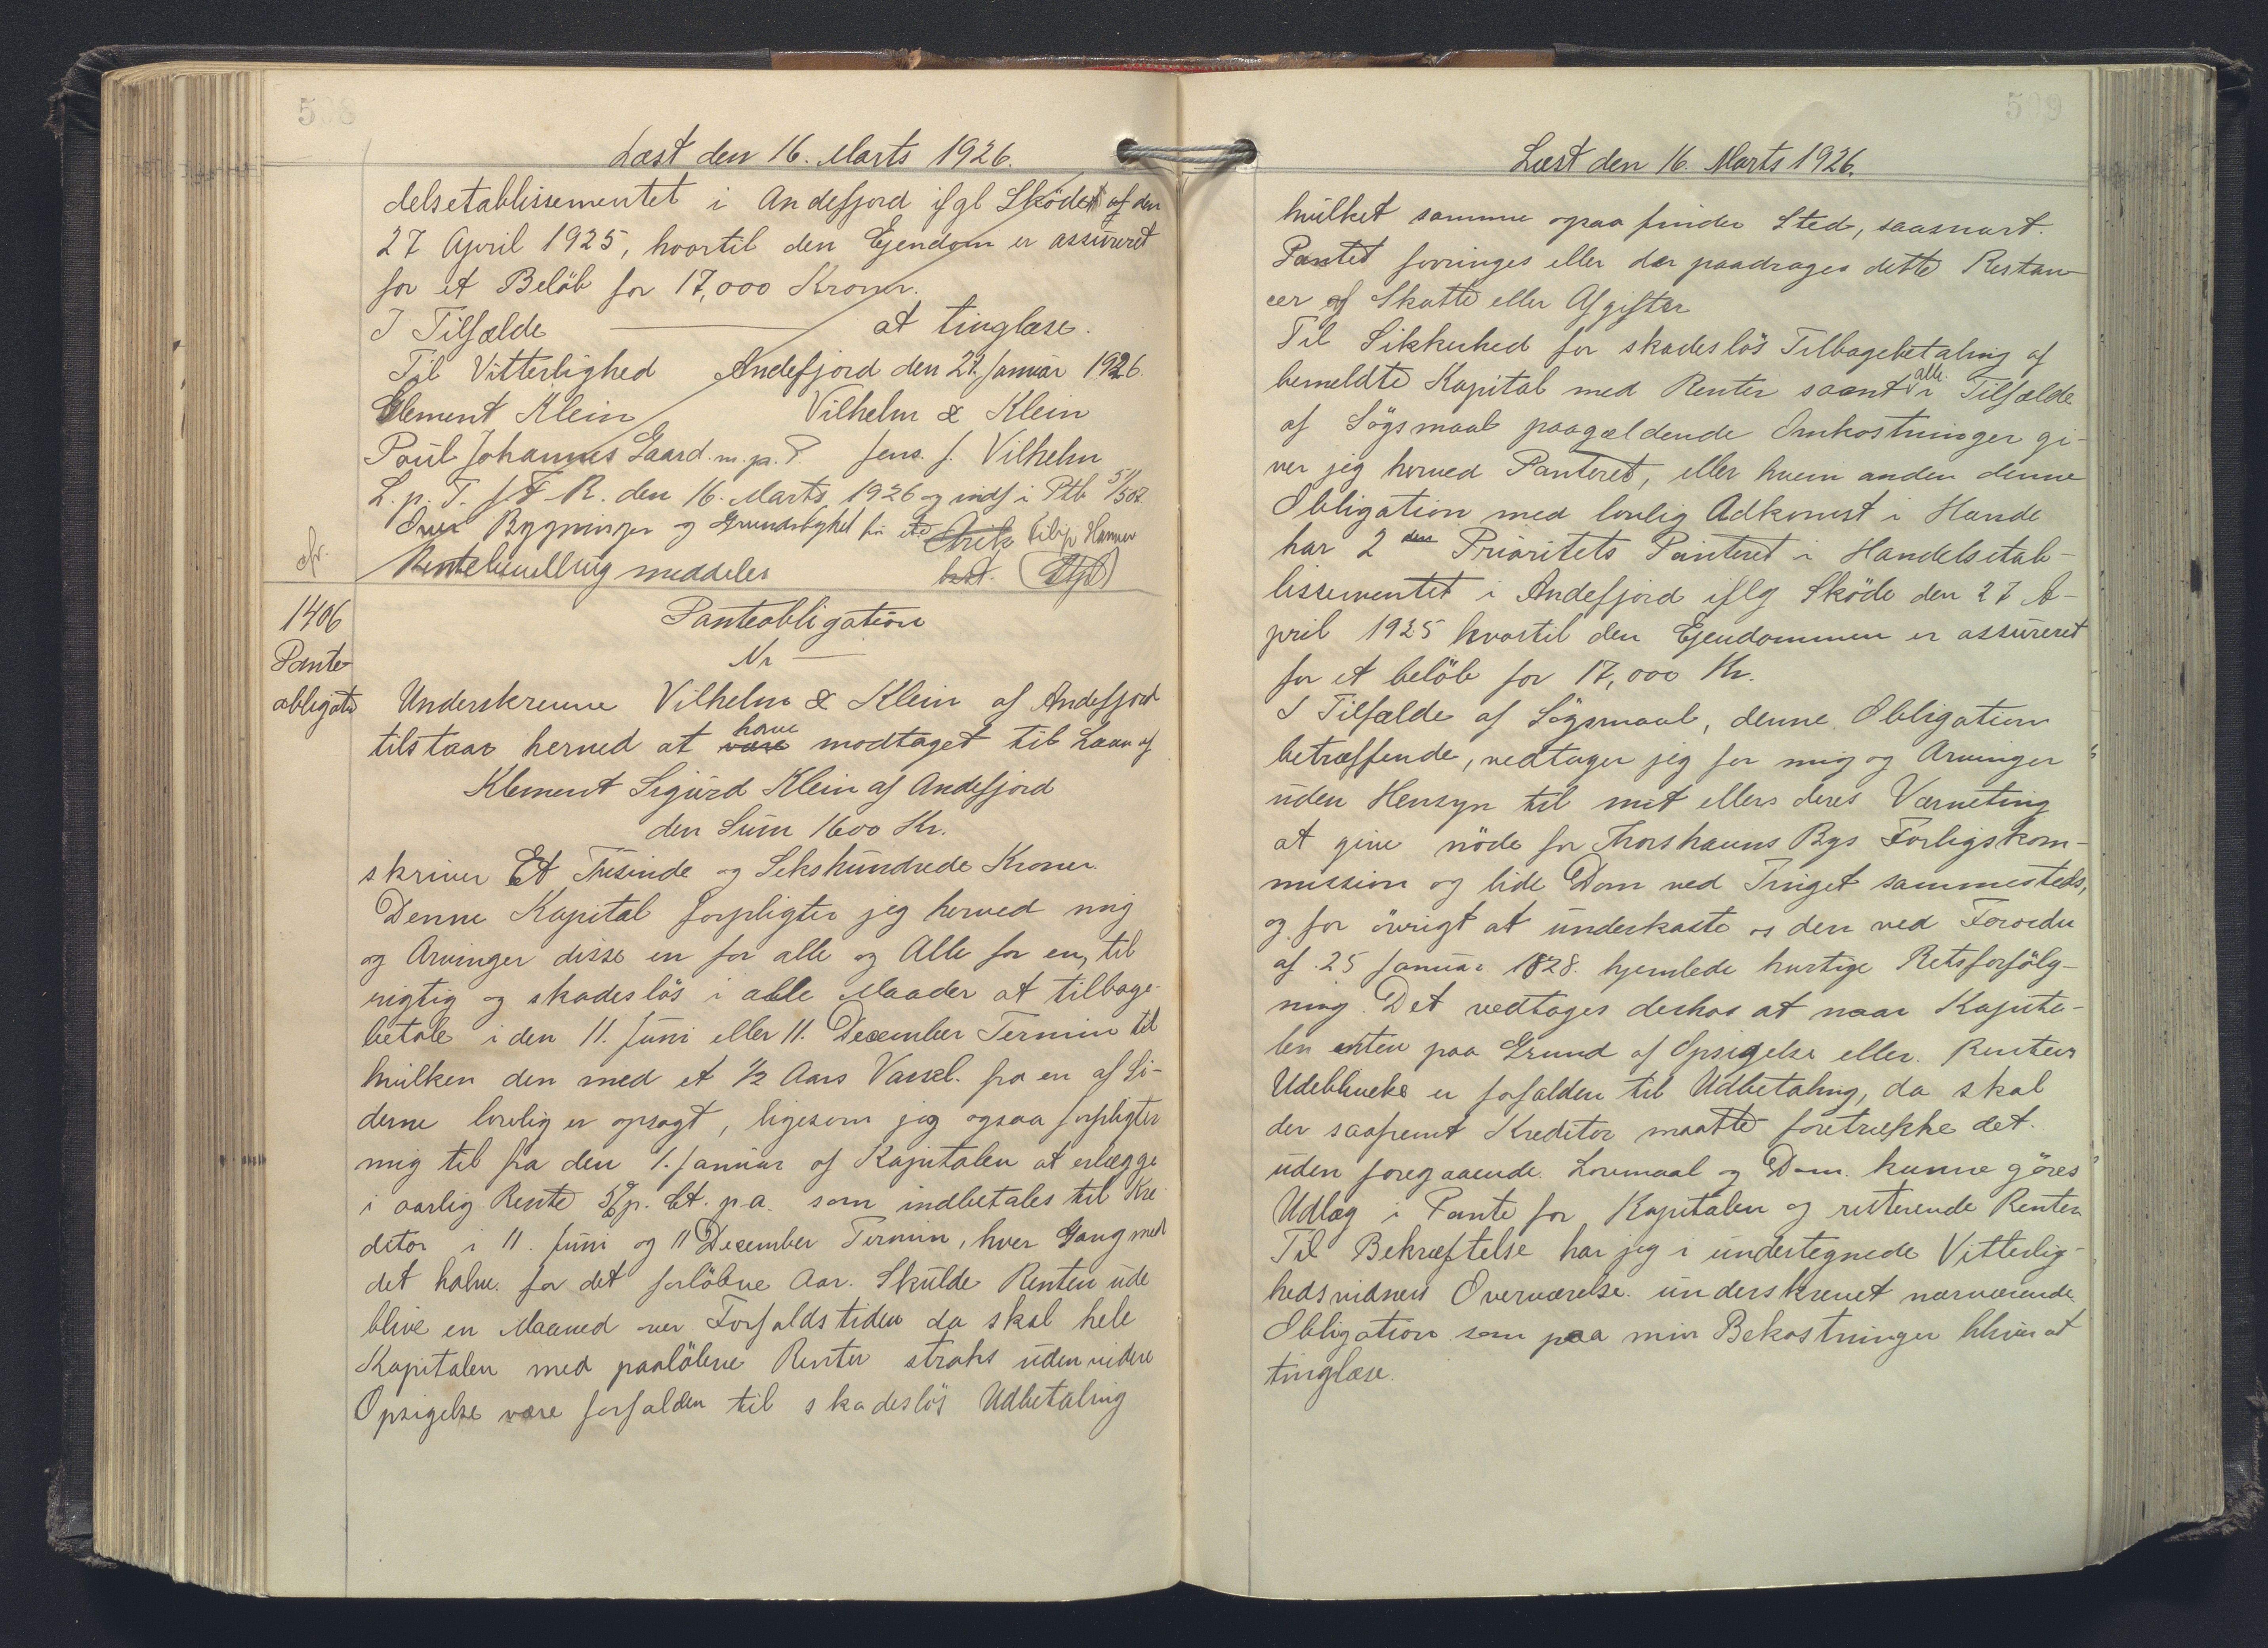 508
Læst den 16. Marts 1926.
delsetablissementet i Andefjord ifgl Sködet af den
27 April 1925, hvortil den Ejendom er assureret
for et Beløb for 17,000 Kroner.
I Tilfælde ——— at tinglæse.
Til Vitterlighed Andefjord den 27. Januar 1926.
Clement Klein Vilhelm & Klein
Poul Johannes Gaard. m. p. P. Jens. J. Vilhelm
L. p. T. f F. R. den 16. Marts 1926 og indf i Ptb 5/502.
Over Bygninger og
Rentebevilling meddeles
afr.
1406
Pante
obligati
Panteobligation
Nr —
Underskrevne Vilhelm & Klein af Andefjord
tilstaar herved at være have modtaget til Laan af
Klement Sigurd Klein af Andefjord
den Sum 1600 Kr.
skriver Et Tusinde og Sekshundrede Kroner.
Denne Kapital forpligter jeg herved mig
og Arvinger disse en for alle og Alle for en, til
rigtig og skadesløs i alle Maader at tilbage-
betale i den 11. Juni eller 11. December Termin til
hvilken den med et 1/2 Aars Varsel. fra en af Si-
derne lovlig er opsagt, ligesom jeg ogsaa forpligter
mig til fra den 1. Januar af Kapitalen at erlægge
i aarlig Rente p. Ct. p. a. som indbetales til Kre
ditor i 11. Juni og 11 December Termin, hver Gang med
det halve for det forløbne Aar. Skulde Renten ude
blive en Maaned over Forfaldstiden da skal hele
Kapitalen med paaløbne Renter straks uden videre
Opsigelse være forfalden til skadesløs Udbetaling
509
Læst den 16. Marts 1926.
hvilket samme ogsaa finder Sted, saasnart.
Pantet forringes eller der paadrages dette Restan
cer af Skatte eller Afgifter
Til Sikkerhed for skadesløs Tilbagebetaling af
bemeldte Kapital med Renter samt i alle Tilfælde
af Søgsmaal paagældende Omkostninger gi-
ver jeg herved Panteret, eller hvem anden denne
Obligation med lovlig Adkomst i Hænde
har 2 den Prioritets Panteret i Handelsetab-
lissementet i Andefjord iflg Sköde den 27 A-
pril 1925 hvortil den Ejendommen er assureret
for et beløb for 17,000 Kr.
I Tilfælde af Søgsmaal, denne Obligation
betræffende, vedtager jeg for mig og Arvinger
uden Hensyn til mit ellers deres Værneting
at give møde for Thorshavns Bys Forligskom-
mission og lide Dom ved Tinget sammesteds,
og for øvrigt at underkaste os den ved Forordn
af 25 Januar 1828. hjemlede hurtige Retsforfølg-
ning. Det vedtages deshos at naar Kapita-
len enten paa Grund af Opsigelse eller. Rentens
Udeblivelse er forfalden til Udbetaling, da skal
der saafremt Kreditor maatte foretrække det.
uden foregaaende. Lovmaal og Dom. kunne gøres
Udlæg i Pante for Kapitalen og resterende Renter
Til Bekræftelse har jeg i undertegnede Vitterlig-
hedsvidners Overværelse. underskrevet nærværende
Obligation som paa min Bekostninger bliver at
tinglæse.